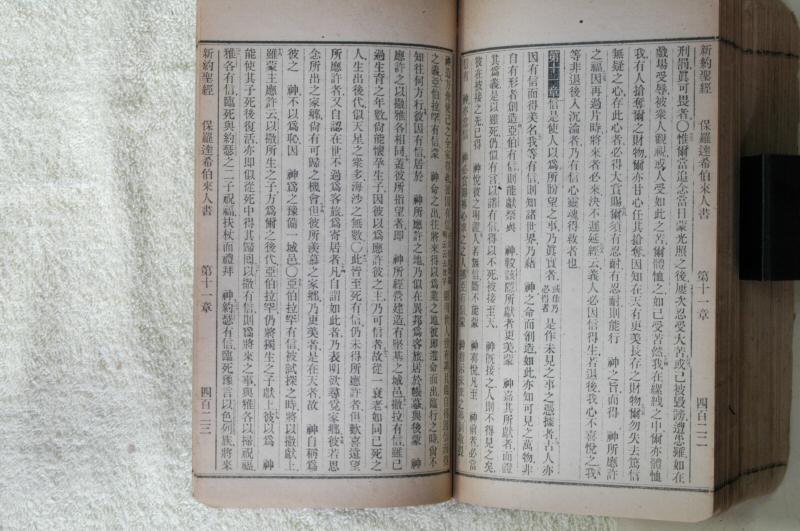 新約聖經 保羅達希伯來人書 第十一章 四百二二
刑罰眞可畏者〇惟爾當追念當日蒙光照之後屢次忍受大苦或己被毀謗遭患難如在
戲場受辱被衆人觀視與人受如此之苦爾體恤之如己受苦然我在縲絏之中爾亦體恤
我有人搶奪爾之財物爾亦甘心任其搶奪因知在天有更美長存之財物爾勿失去篤信
無疑之心存此心者必得大賞賜爾須有忍耐有忍耐則能行 神之旨而得 神所應許
之福因再過片時將來者必來決不遲延經云義人必因信得生若退後我心不喜悅之我
等非退後人沉淪者乃有信心靈魂得救者也
第十一章 信是使人以爲所盼望之事乃眞實者 或作乃必得者 是作未見之事之憑據者古人亦
因有信而得美名我等有信則知諸世界乃藉 神之命而創造如此亦知可見之萬物非
自有形者創造亞伯有信則能獻祭與 神較該隱所獻者更美蒙 神喜其所獻者而證
其爲義是以雖死仍似有言以諾有信得以不死被接至天 神旣接之人則不得見之矣
彼在被接之先已得 神悅彼之明證人若無信斷不能蒙 神喜悅凡至 神前者必當
之義亞伯拉罕有信蒙 神命之出往將來得以爲業之地彼卽遵命而出臨行之時尙不
知往何方行彼因有信居於 神所應許之地乃似在異邦爲客旅居於帳幕與後蒙 神
應許之以撒雅各相同蓋彼所指望者卽 神所經營建造有堅基之城邑撒拉有信雖已
過生育之年數尙能懷孕生子因彼以爲應許彼之主乃可信者故從一衰老如同已死之
人生出後代似天星之衆多海沙之無數〇此皆至死有信仍未得所應許者但歡喜遠望
所應許者又自認在世不過爲客旅爲寄居者凡自謂如此者乃表明欲尋覓家鄉彼若思
念所出之家鄉尙有可歸之機會但彼所羨慕之家鄉乃更美者是在天者故 神自稱爲
彼之 神不以爲恥因 神爲之豫備一城邑〇亞伯拉罕有信被試探之時將以撒獻上
彼雖蒙主應許云以撒所生之子方爲爾之後代亞伯拉罕仍將獨生之子獻上彼以爲 神
能使其子死後復活亦卽似從死中得其歸回以撒有信則爲將來之事與雅各以掃祝福
雅各有信臨死與約瑟之二子祝福扶杖而禮拜 神約瑟有信臨死預言以色列族將來
新約聖經 保羅達希伯來人書 第十一章 四百二三